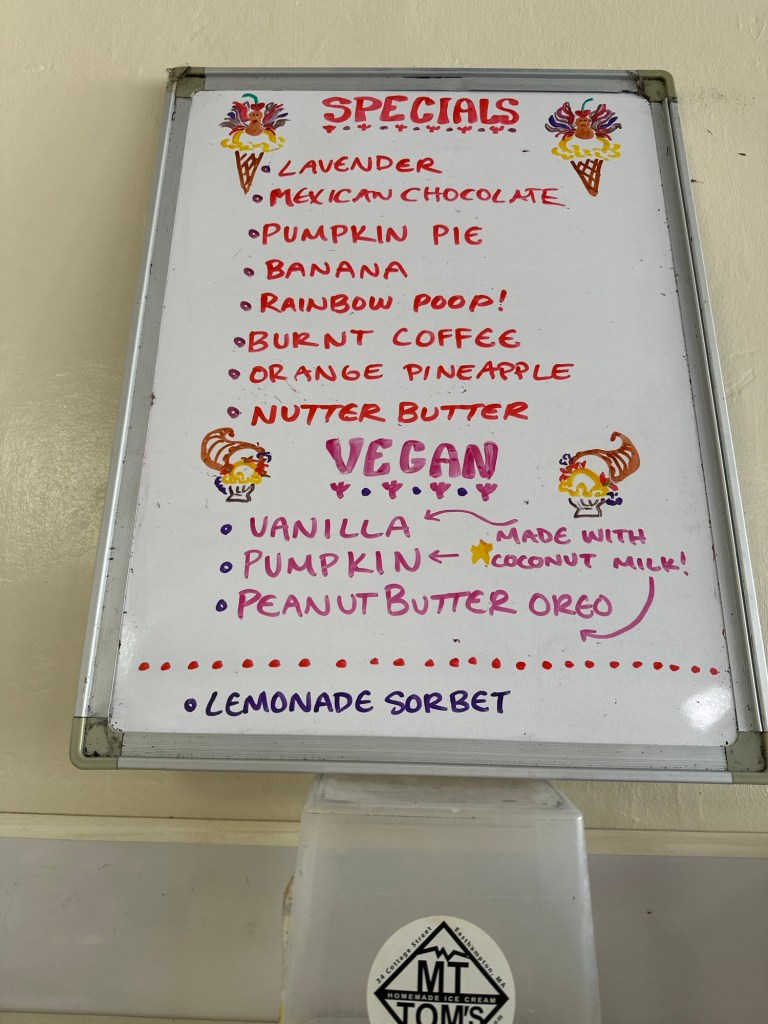 SPECIALS
• LAVENDER
• MEXICAN CHOCOLATE
• PUMPKIN PIE
• BANANA
• RAINBOW POOP!
• BURNT COFFEE
• ORANGE PINEAPPLE
• NUTTER BUTTER
VEGAN
• VANILLA
• PUMPKIN
• PEANUT BUTTER OREO
MADE WITH
COCONUT MILK!
• LEMONADE SORBET
34 Cottage Street Easthampton, MA
MT
HOMEMADE ICE CREAM
TOM'S